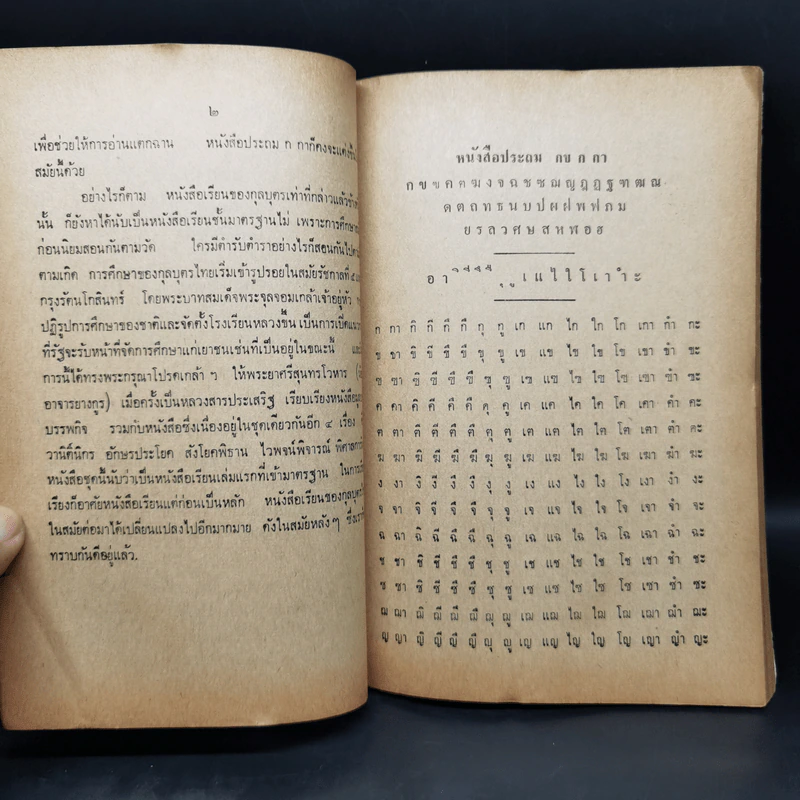 ๒
เพื่อช่วยให้การอ่านแตกฉาน หนังสือประถม ก กาก็คงจะแต่งขึ้น
สมัยนี้ด้วย
อย่างไรก็ตาม หนังสือเรียนของกุลบุตรเท่าที่กล่าวแล้วข้าง
นั้น ก็ยังหาได้นับเป็นหนังสือเรียนชั้นมาตรฐานไม่ เพราะการศึกษา
ก่อนนิยมสอนกันตามวัด ใครมีตำรับตำราอย่างไรก็สอนกันไปตาม
ตามเกิด การศึกษาของกุลบุตรไทยเริ่มเข้ารูปรอยในสมัยรัชกาลที่ ๕
กรุงรัตนโกสินทร์ โดยพระบาทสมเด็จพระจุลจอมเกล้าเจ้าอยู่หัว
ปฏิรูปการศึกษาของชาติและจัดตั้งโรงเรียนหลวงขึ้น เป็นการเปิด
ที่รัฐจะรับหน้าที่จัดการศึกษาแก่เยาชนเช่นที่เป็นอยู่ในขณะนี้
การนี้ได้ทรงพระกรุณาโปรดเกล้า ฯ ให้พระยาศรีสุนทรโวหาร
อาจารยางกูร) เมื่อครั้งเป็นหลวงสารประเสริฐ เรียบเรียงหนังสือมูล
บรรพกิจ รวมกับหนังสือซึ่งเนื่องอยู่ในชุดเดียวกันอีก ๔ เรื่อง
วานิติ์นิกร อักษรประโยค สังโยคพิธาน ไวพจน์พิจารณ์ พิศาลการ
หนังสือชุดนี้นับว่าเป็นหนังสือเรียนเล่มแรกที่เข้ามาตรฐาน ในการ
เรียงก็อาศัยหนังสือเรียนแต่ก่อนเป็นหลัก หนังสือเรียนของกุลบุตร
ในสมัยต่อมาได้เปลี่ยนแปลงไปอีกมากมาย ดังในสมัยหลังๆ ซึ่งเรา
ทราบกันดีอยู่แล้ว.
หนังสือประถม กข ก กา
ก ข ฃ ค ฅ ฆ ง จ ฉ ช ซ ฌ ญ ฎ ฏ ฐ ฑ ฒ ณ
ด ต ถ ท ธ น บ ป ผ ฝ พ ฟ ภ ม
ย ร ล ว ศ ษ ส ห ฬ อ ฮ
อ า ิ ี ึ ื ุ ู เ แ ไ ใ โ เา ำ ะ
ก กา กิ กี กึ กื กุ กู เก แก ไก ใก โก เกา กำ กะ
ข ขา ขิ ขี ขึ ขื ขุ ขู เข แข ไข ใข โข เขา ขำ ขะ
ฃ ฃา ฃิ ฃี ฃึ ฃื ฃุ ฃู เฃ แฃ ไฃ ใฃ โฃ เฃา ฃำ ฃะ
ค คา คิ คี คึ คื คุ คู เค แค ไค ใค โค เคา คำ คะ
ฅ ฅา ฅิ ฅี ฅึ ฅื ฅุ ฅู เฅ แฅ ไฅ ใฅ โฅ เฅา ฅำ ฅะ
ฆ ฆา ฆิ ฆี ฆึ ฆื ฆุ ฆู เฆ แฆ ไฆ ใฆ โฆ เฆา ฆำ ฆะ
ง งา งิ งี งึ งื งุ งู เง แง ไง ใง โง เงา งำ งะ
จ จา จิ จี จึ จื จุ จู เจ แจ ไจ ใจ โจ เจา จำ จะ
ฉ ฉา ฉิ ฉี ฉึ ฉื ฉุ ฉู เฉ แฉ ไฉ ใฉ โฉ เฉา ฉำ ฉะ
ช ชา ชิ ชี ชึ ชื ชุ ชู เช แช ไช ใช โช เชา ชำ ชะ
ซ ซา ซิ ซี ซึ ซื ซุ ซู เซ แซ ไซ ใซ โซ เซา ซำ ซะ
ฌ ฌา ฌิ ฌี ฌึ ฌื ฌุ ฌู เฌ แฌ ไฌ ใฌ โฌ เฌา ฌำ ฌะ
ญ ญา ญิ ญี ญึ ญื ญุ ญู เญ แญ ไญ ใญ โญ เญา ญำ ญะ